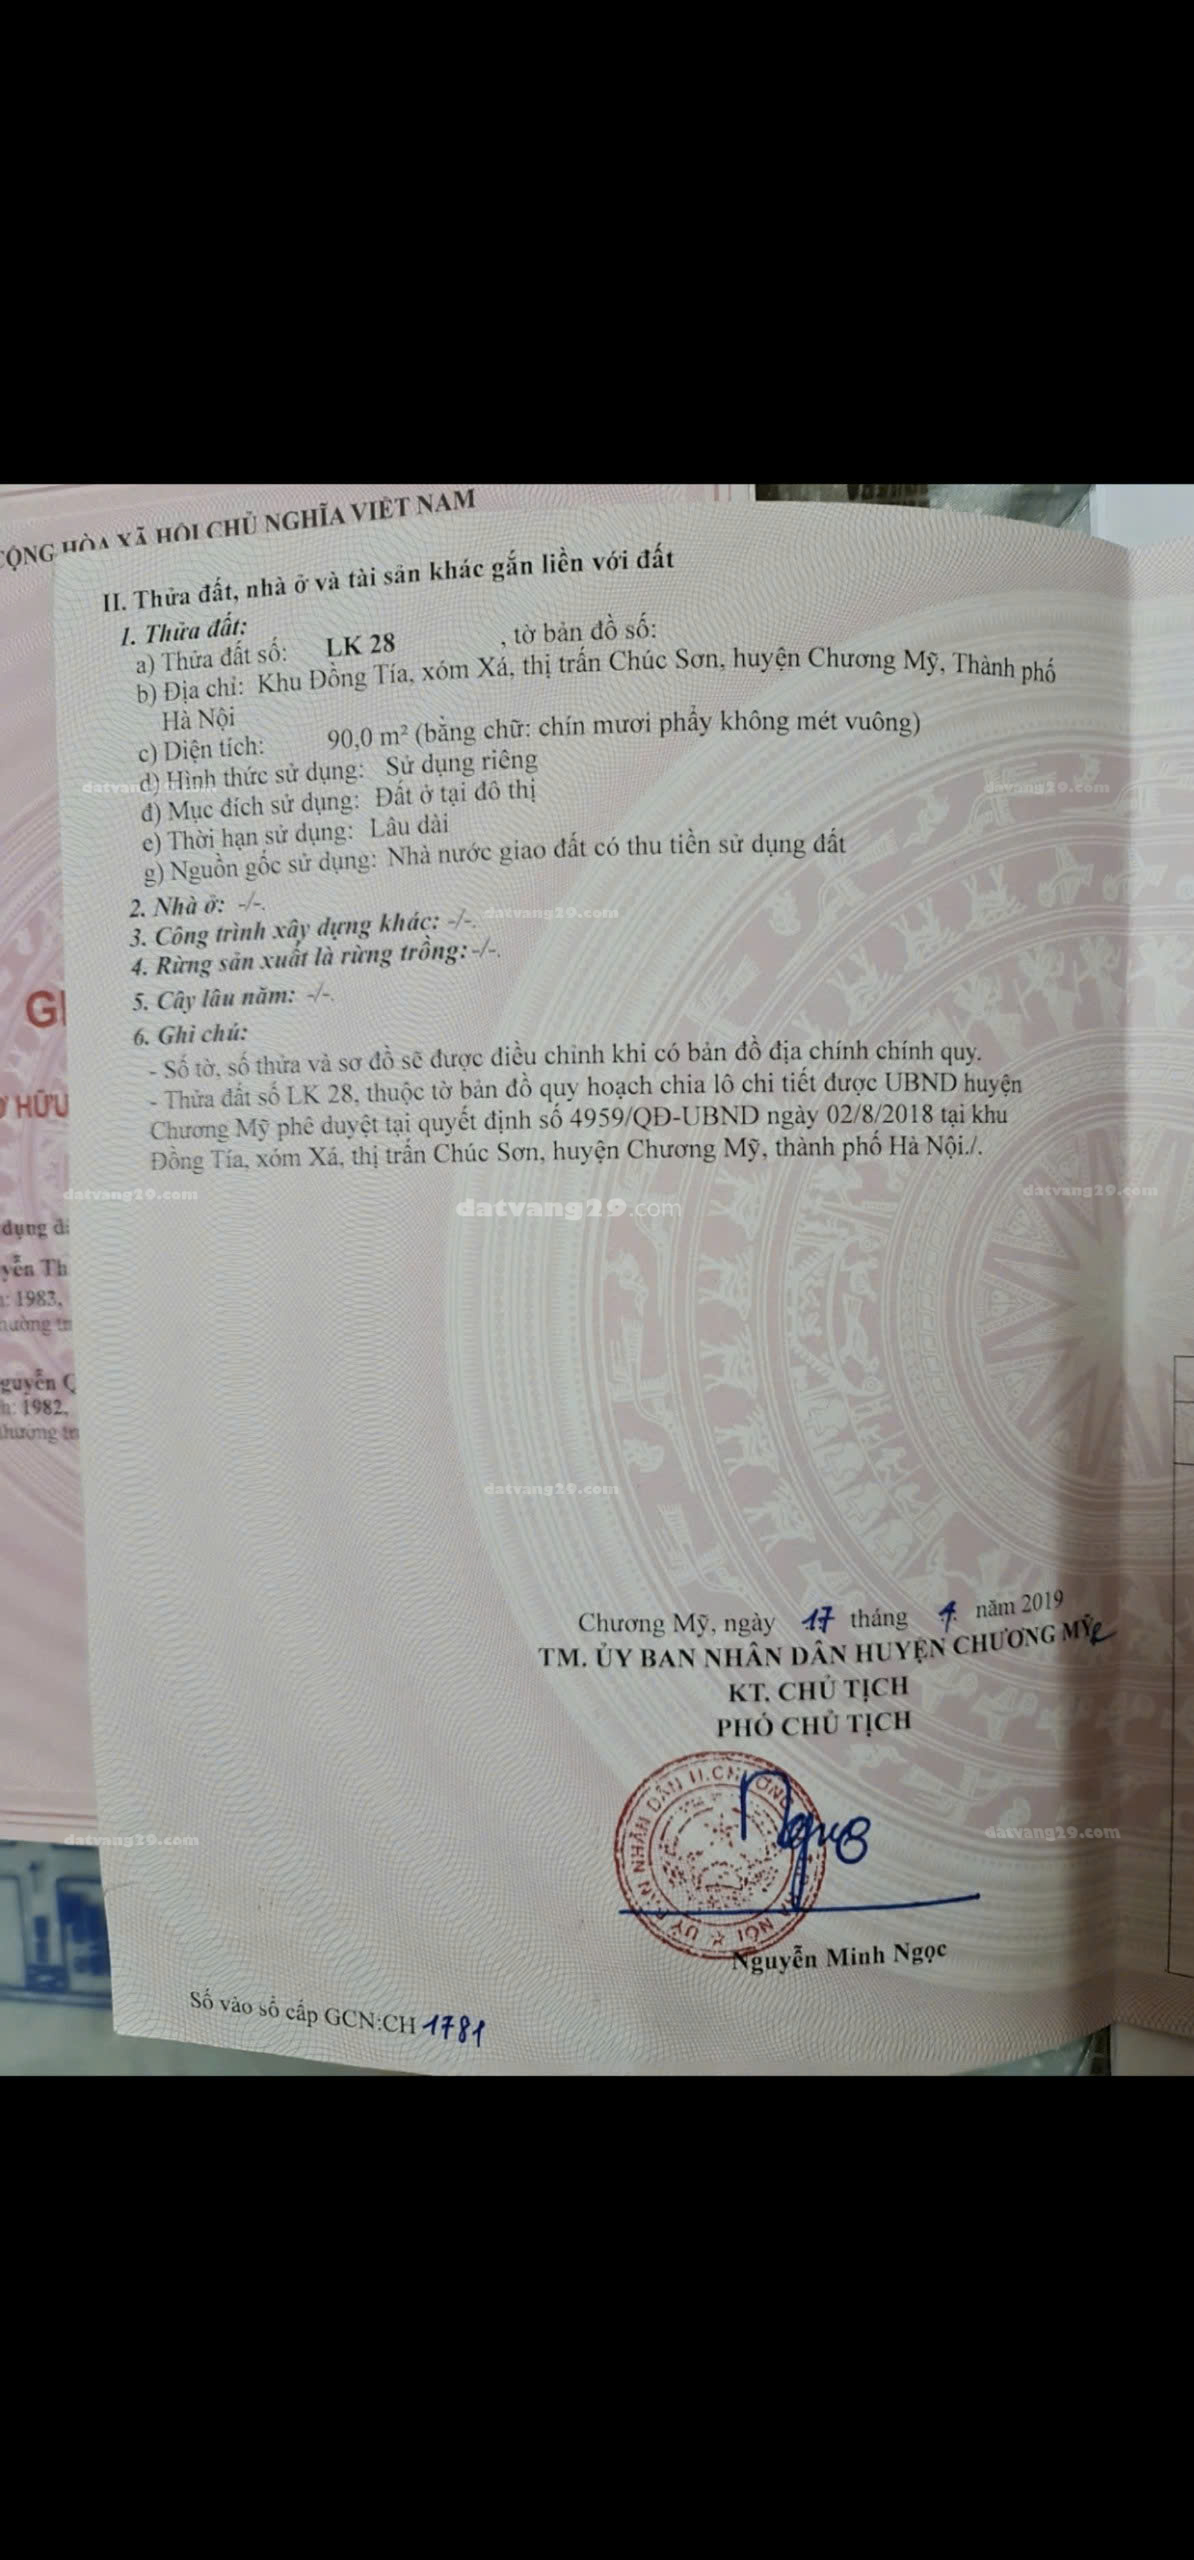 CỘNG HÒA XÃ HỘI CHỦ NGHĨA VIỆT NAM
II. Thửa đất, nhà ở và tài sản khác gắn liền với đất
1. Thửa đất:
a) Thửa đất số: LK 28 , tờ bản đồ số:
b) Địa chỉ: Khu Đồng Tía, xóm Xá, thị trấn Chúc Sơn, huyện Chương Mỹ, Thành phố
Hà Nội
c) Diện tích: 90,0 m² (bằng chữ: chín mươi phẩy không mét vuông)
d) Hình thức sử dụng: Sử dụng riêng
đ) Mục đích sử dụng: Đất ở tại đô thị
e) Thời hạn sử dụng: Lâu dài
g) Nguồn gốc sử dụng: Nhà nước giao đất có thu tiền sử dụng đất
2. Nhà ở: -/-.
3. Công trình xây dựng khác: -/-.
4. Rừng sản xuất là rừng trồng: -/-.
5. Cây lâu năm: -/-.
6. Ghi chú:
- Số tờ, số thửa và sơ đồ sẽ được điều chỉnh khi có bản đồ địa chính chính quy.
- Thửa đất số LK 28, thuộc tờ bản đồ quy hoạch chia lô chi tiết được UBND huyện
Chương Mỹ phê duyệt tại quyết định số 4959/QĐ-UBND ngày 02/8/2018 tại khu
Đồng Tía, xóm Xá, thị trấn Chúc Sơn, huyện Chương Mỹ, thành phố Hà Nội./.
datvang29.com
HỮU
dụng
1983,
1982,
Chương Mỹ, ngày 17 tháng năm 2019
TM. ỦY BAN NHÂN DÂN HUYỆN CHƯƠNG MỸ
KT. CHỦ TỊCH
PHÓ CHỦ TỊCH
Nguyễn Minh Ngọc
Số vào sổ cấp GCN:CH 1781